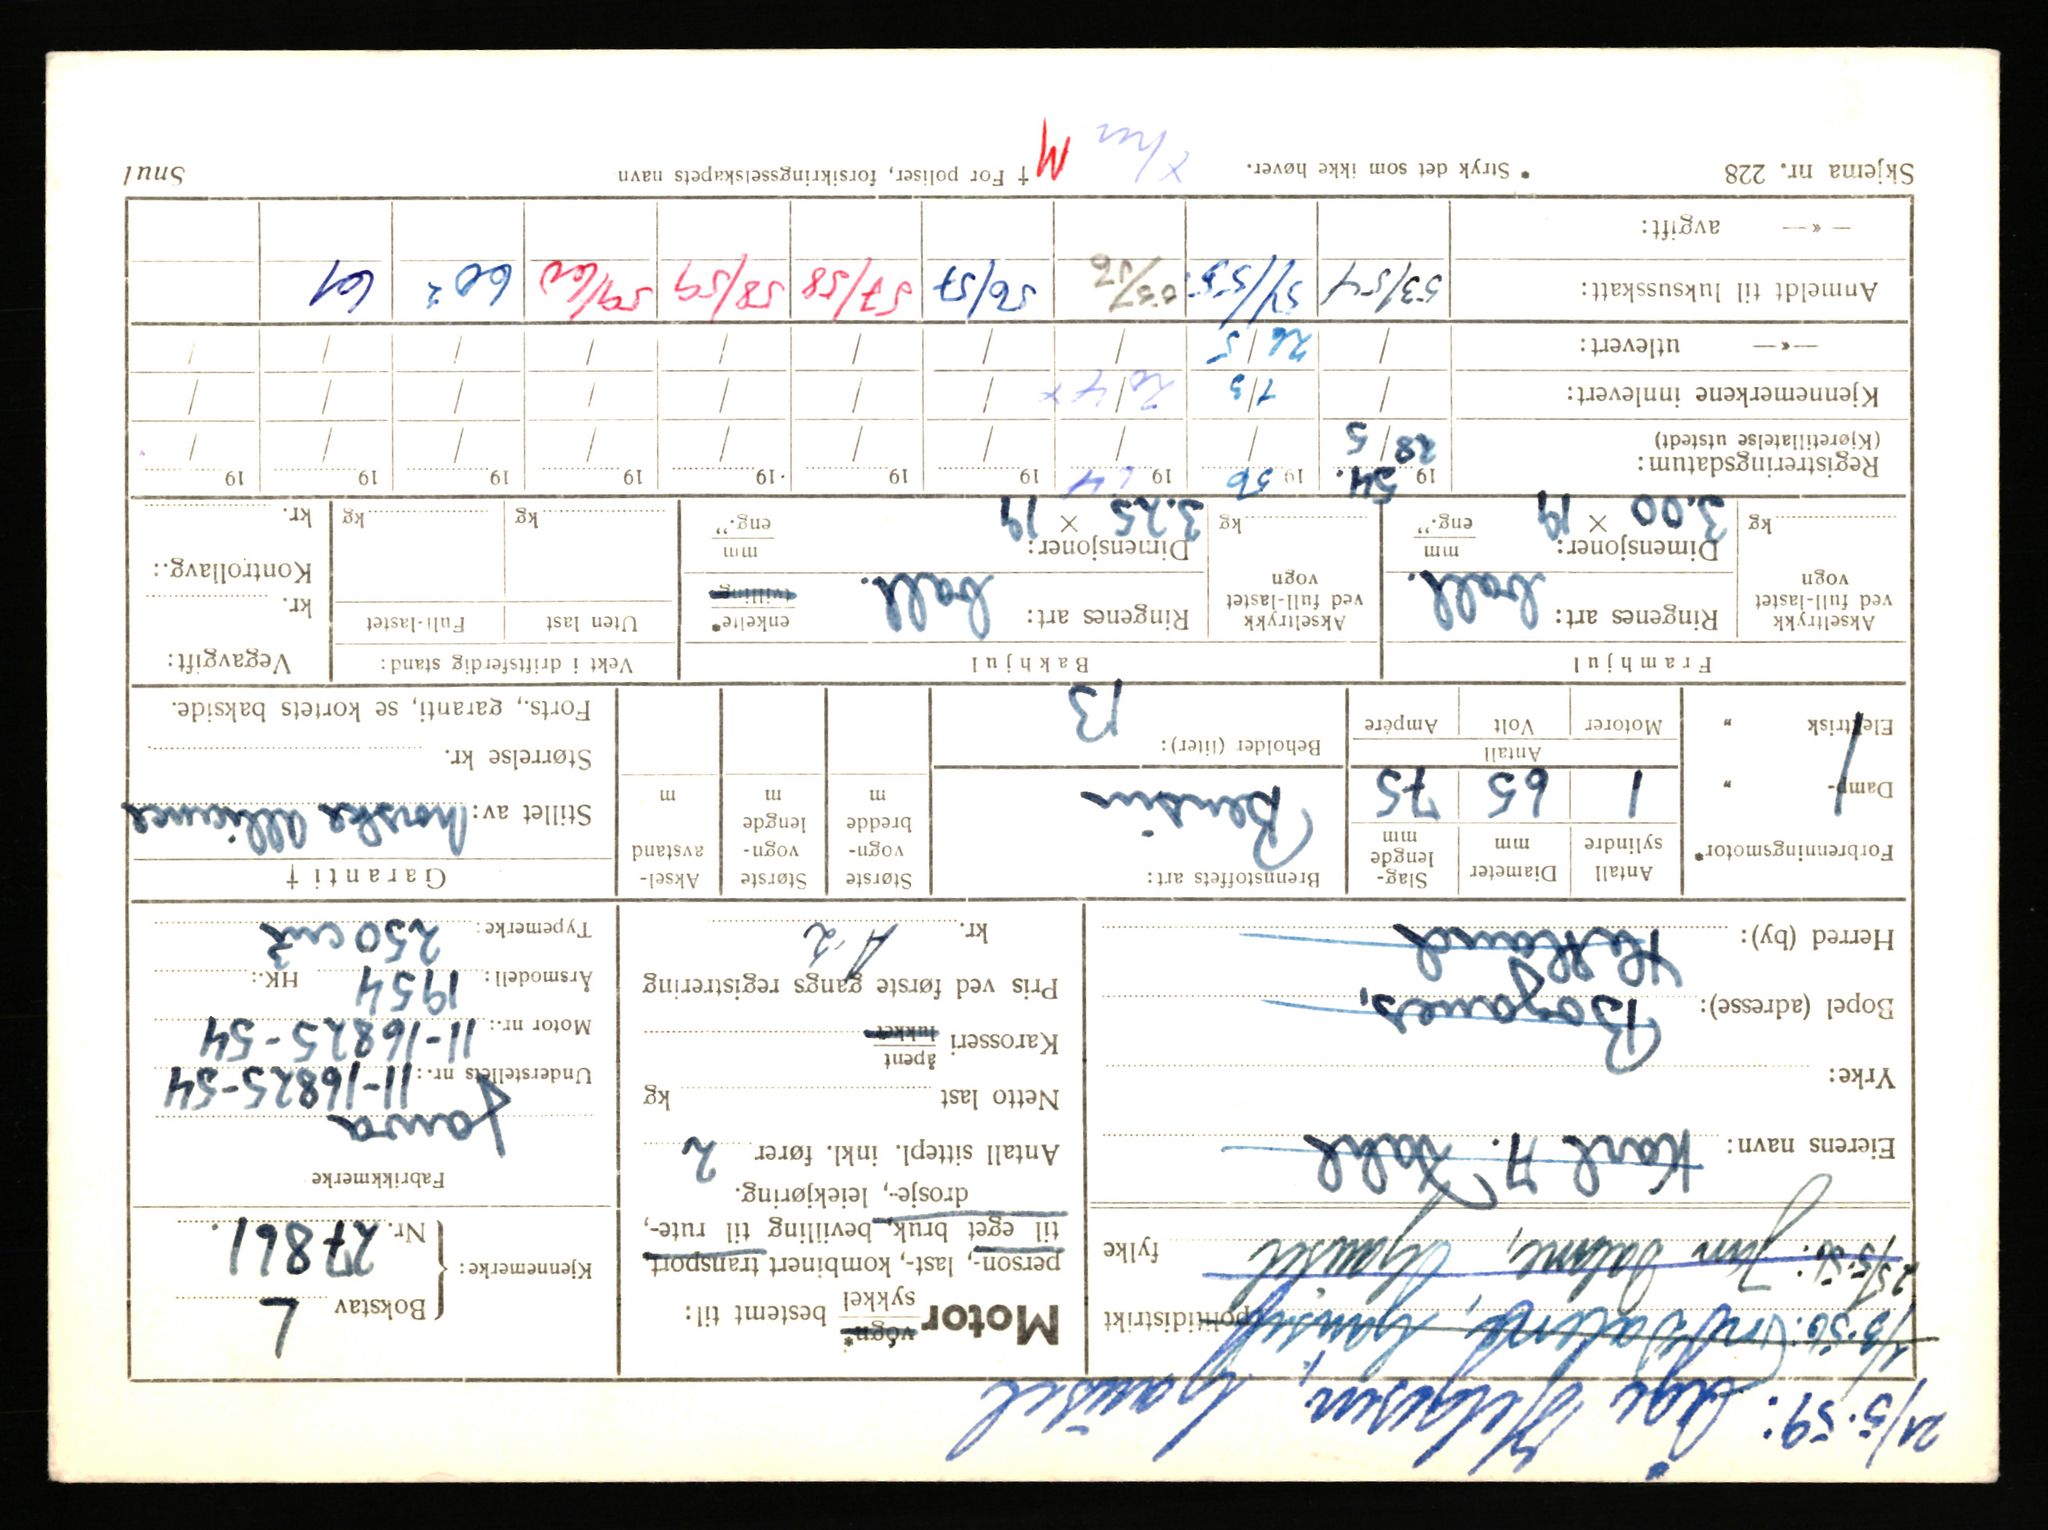 21/5-59: Åge Helgesen, Gausel
1/3-56: Gausel
politidistrikt
25/5-56: Jan Salme, Gausel
fylke
Eierens navn: Karl A. Dahl
Yrke:
Bopel (adresse): Boganes,
Herred (by): Hetland
Motor vogn* sykkel bestemt til:
person-, last-, kombinert transport,
til eget bruk, bevilling til rute-,
drosje-, leiekjøring.
Antall sittepl. inkl. fører 2
Netto last kg
Karosseri åpent lukket
Pris ved første gangs registrering
kr. A-2
Kjennemerke: Bokstav L
Nr. 27861.
Fabrikkmerke
Jawa
Understellets nr.: 11-16825-54
Motor nr.: 11-16825-54
Årsmodell: 1954 HK.:
Typemerke: 250 cm3
Forbrenningsmotor*
Damp- "
Elektrisk "
Antall sylindre 1
Diameter mm 65
Slag-lengde mm 75
Antall
Motorer Volt Ampère
Brennstoffets art: Bensin
Beholder (liter): 13
Største vogn-bredde m
Største vogn-lengde m
Aksel-avstand m
Garanti †
Stillet av: Norske Alliance
Størrelse kr.
Forts., garanti, se kortets bakside.
Framhjul
Akseltrykk ved full-lastet vogn kg
Ringenes art: ball.
Dimensjoner: 3.00 × 19 mm eng."
Bakhjul
Akseltrykk ved full-lastet vogn kg
Ringenes art: ball. enkelte* tvilling
Dimensjoner: 3.25 × 19 mm eng."
Vekt i driftsferdig stand:
Uten last Full-lastet
kg kg
Vegavgift:
kr.
Kontrollavg.:
kr.
Registreringsdatum: 19 54. 19 56 19 64 19 19 19 19 19 19 19
(Kjøretillatelse utstedt) 28/5
Kjennemerkene innlevert: 1/3 20/4 x
—»— utlevert: 26/5
Anmeldt til luksusskatt: 53/54 54/55 55/56 56/57 57/58 58/59 59/60 60² 61
—«— avgift:
Skjema nr. 228
* Stryk det som ikke høver.
† For poliser, forsikringsselskapets navn
Snul
M